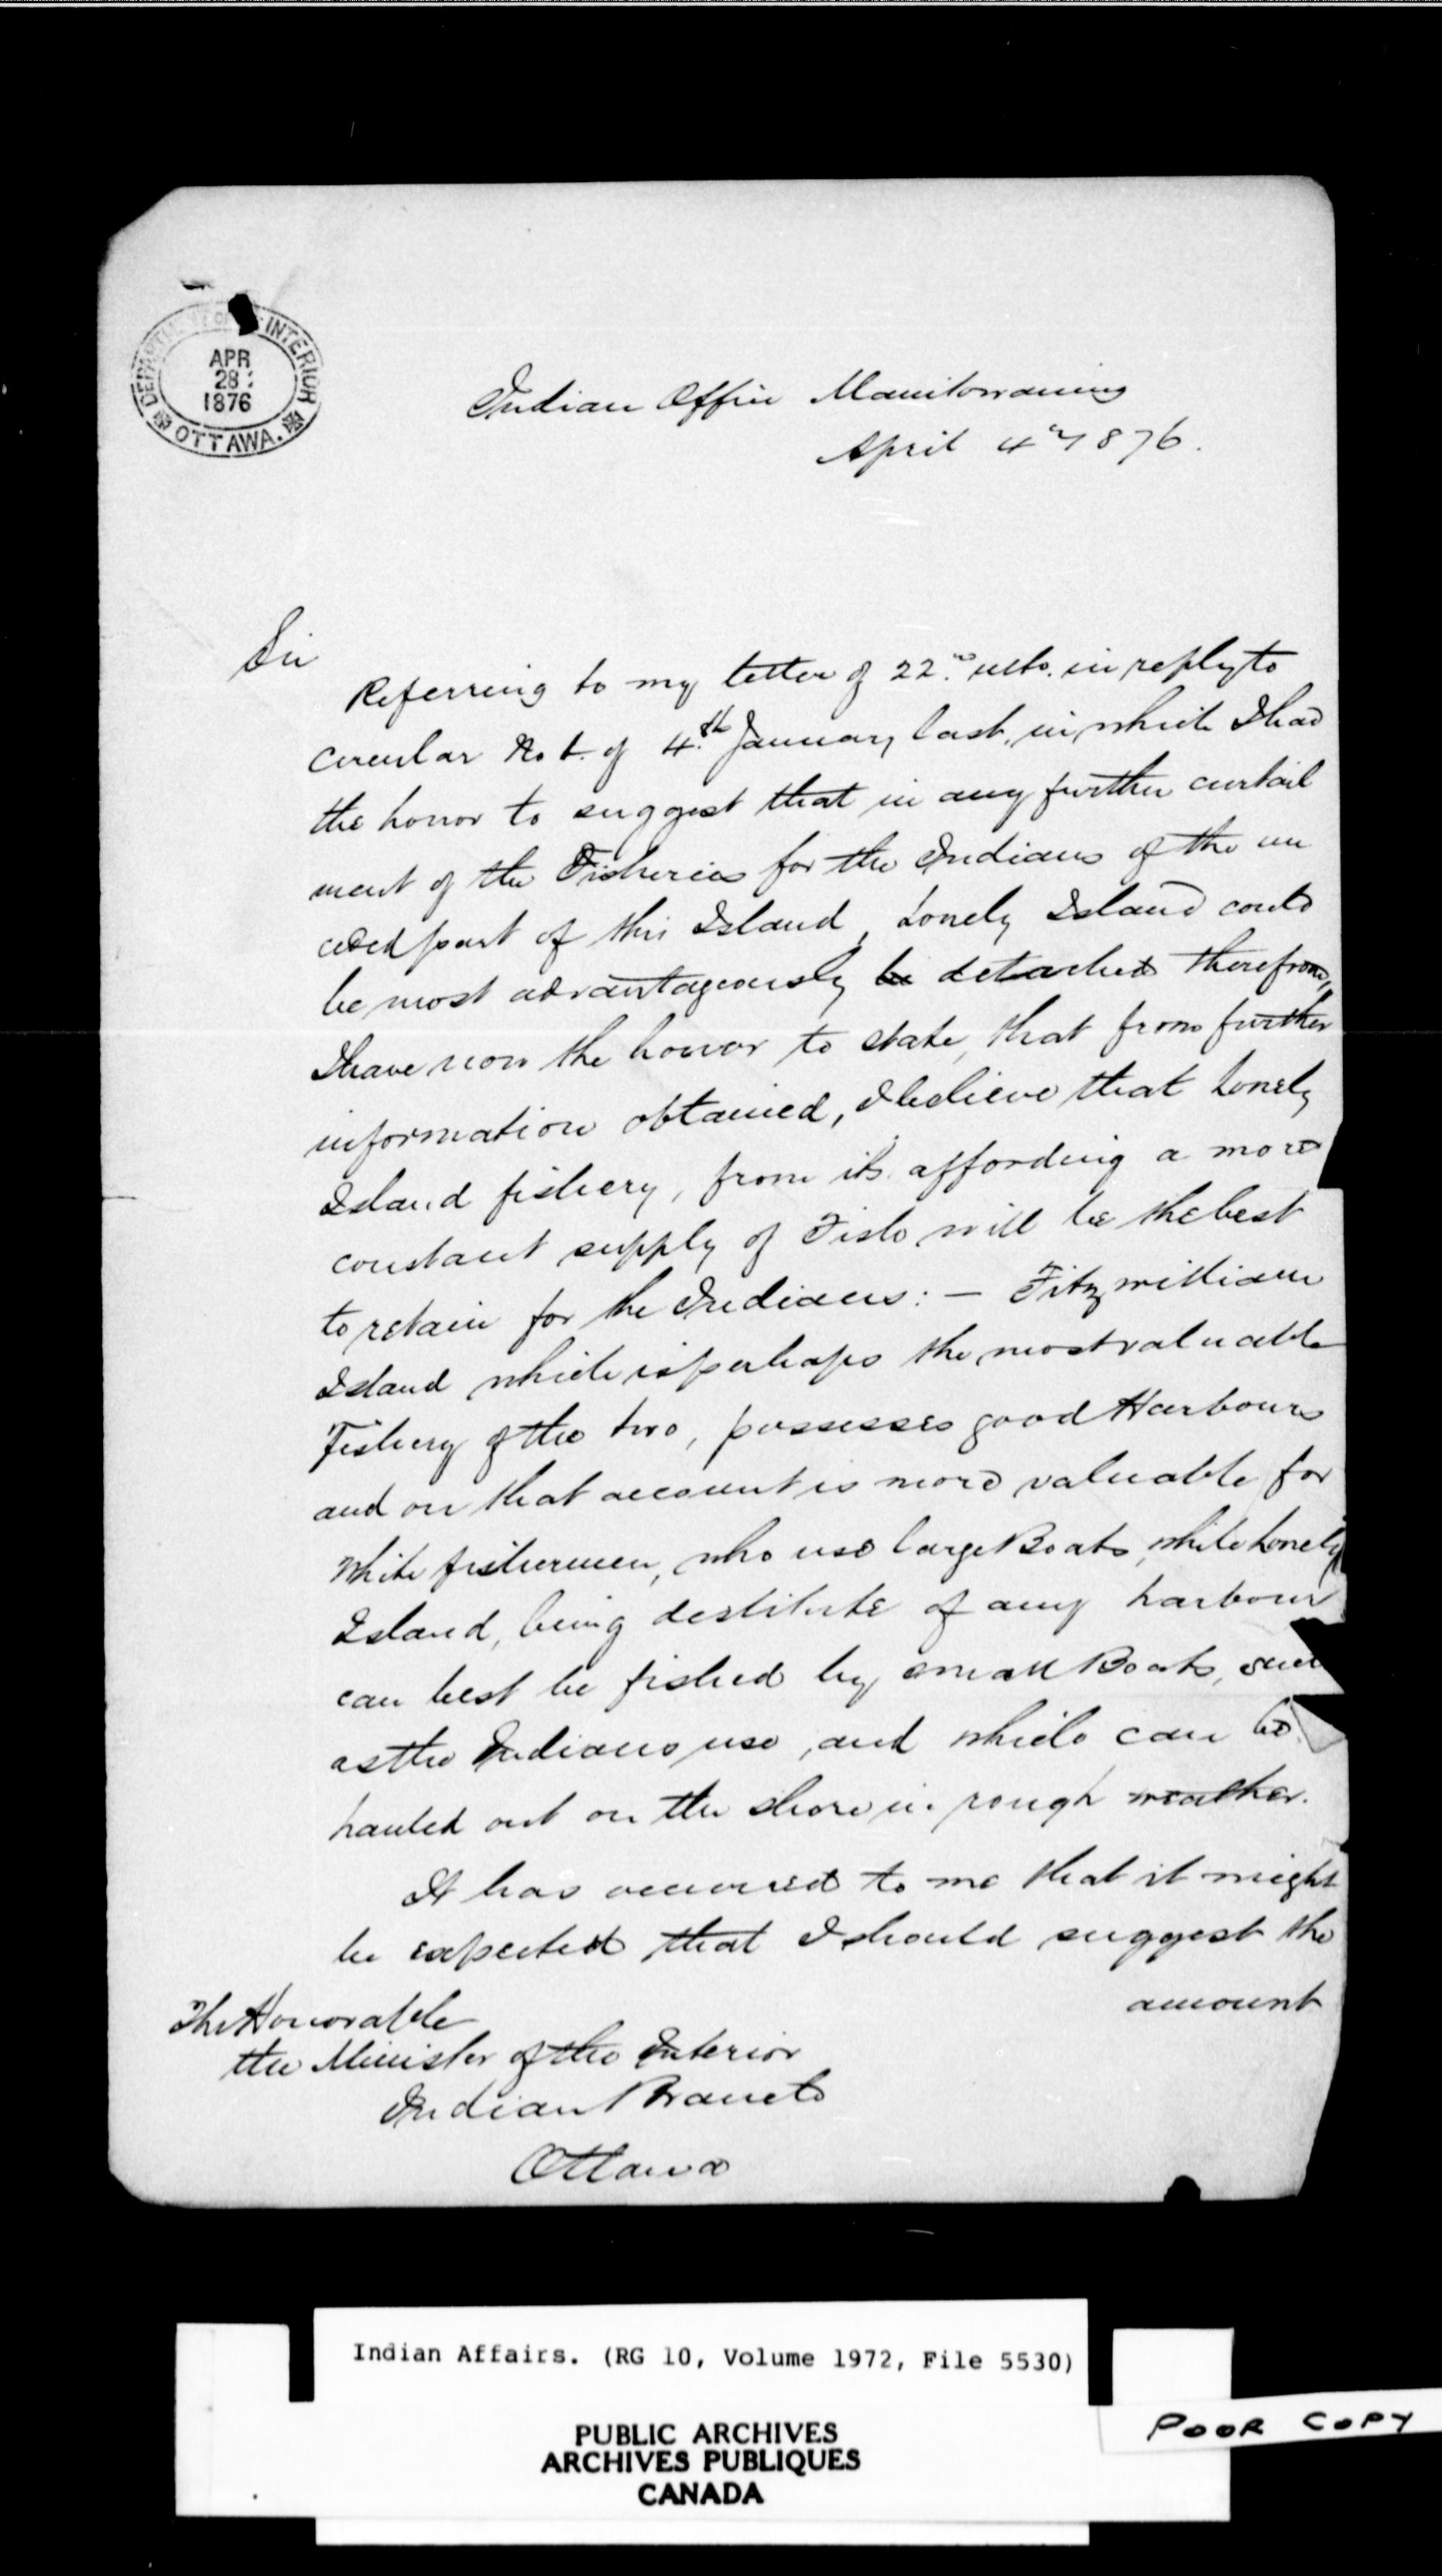 DEPARTMENT OF INTERIOR
APR
28
1876
OTTAWA.
Indian Office Manitowaning
April 4th 1876.
Sir
Referring to my letter of 22nd ulto. in reply to
Circular No 1. of 4th January last, in which I had
the honor to suggest that in any further curtail
ment of the Fisheries for the Indians of the un
ceded part of this Island, Lonely Island could
be most advantageously be detached therefrom,
I have now the honor to state, that from further
information obtained, I believe that Lonely
Island fishery, from its affording a more
constant supply of Fish will be the best
to retain for the Indians: — Fitzwilliam
Island which is perhaps the most valuable
Fishery of the two, possesses good Harbours
and on that account is more valuable for
White fishermen, who use large Boats, while Lonely
Island, being destitute of any harbour
can best be fished by small Boats, such
as the Indians use, and which can be
hauled out on the shore in rough weather.
It has occurred to me that it might
be expected that I should suggest the
amount
The Honorable
the Minister of the Interior
Indian Branch
Ottawa
Indian Affairs. (RG 10, Volume 1972, File 5530)
PUBLIC ARCHIVES
ARCHIVES PUBLIQUES
CANADA
POOR COPY